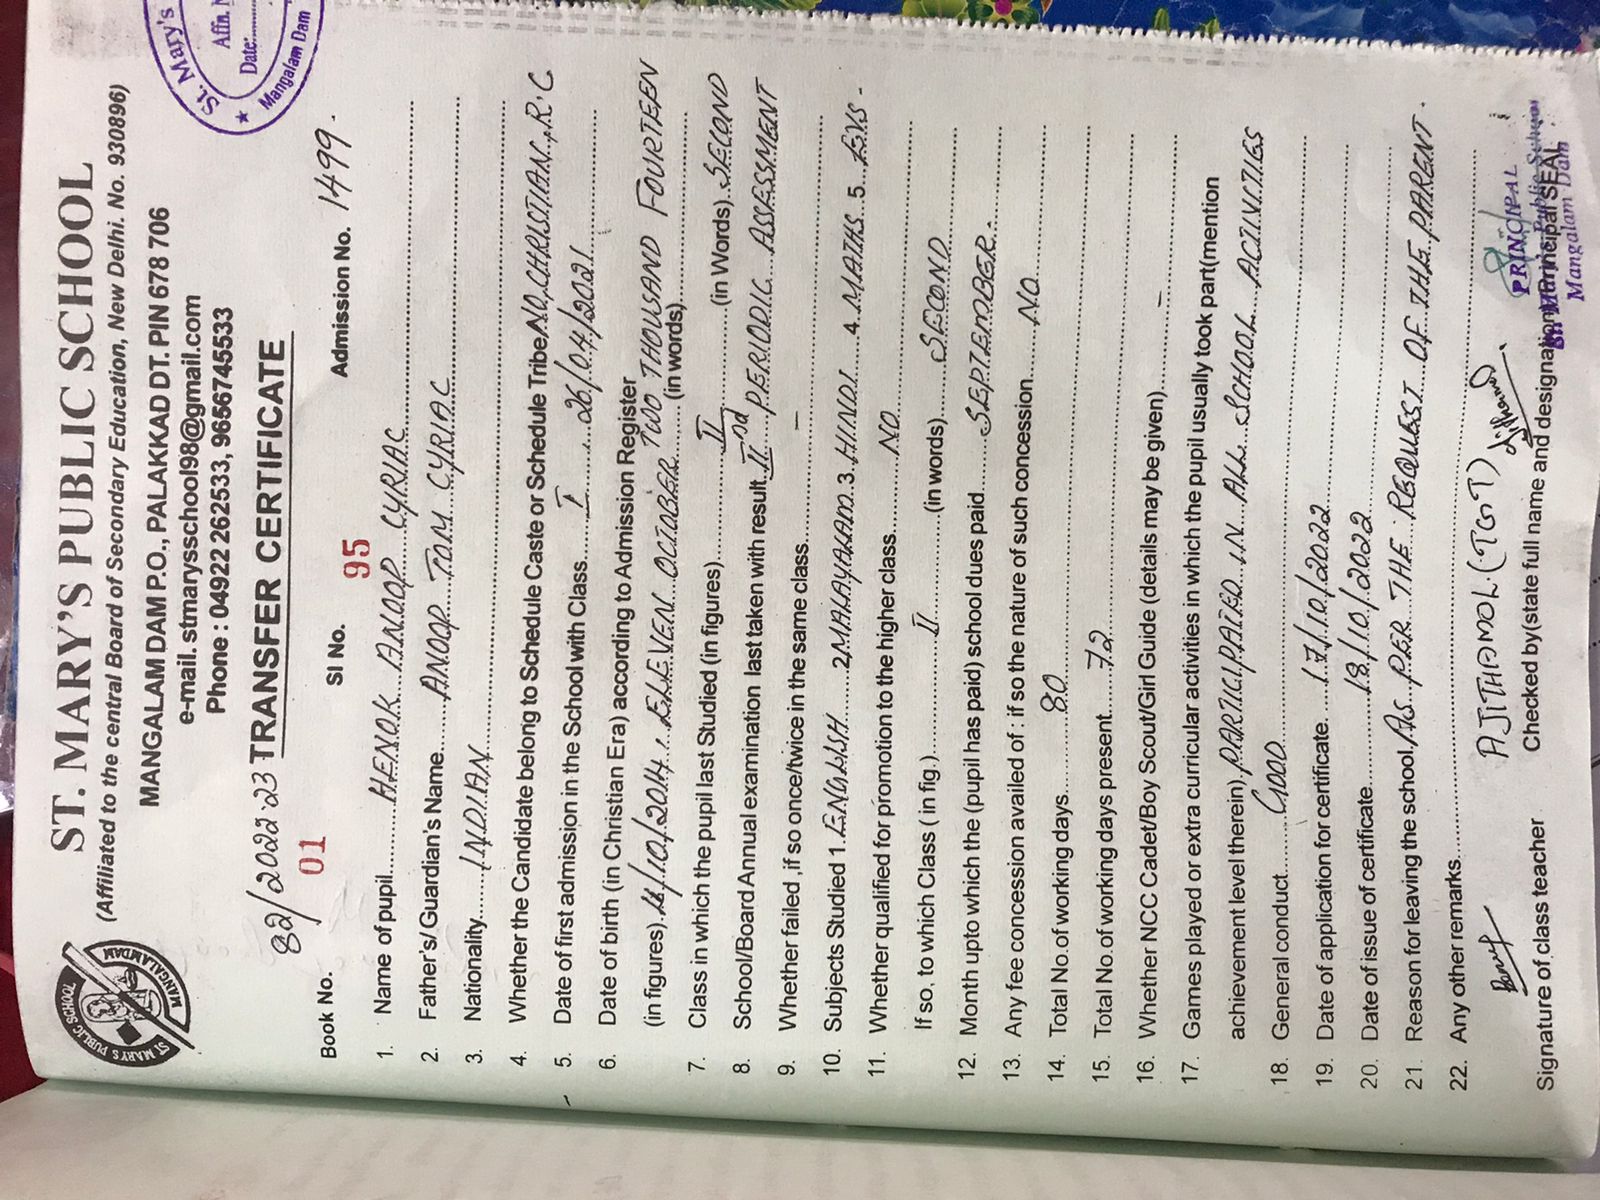 ST. MARY'S PUBLIC SCHOOL
(Affiliated to the central Board of Secondary Education, New Delhi. No. 930896)
MANGALAM DAM P.O., PALAKKAD DT. PIN 678 706
e-mail. stmarysschool98@gmail.com
Phone : 04922 262533, 9656745533
ST MARY'S PUBLIC SCHOOL
MANGALAMDAM
St. Mary's
Affn. N
Date:
Mangalam Dam
82/2022-23 TRANSFER CERTIFICATE
Book No. 01 Sl No. 95 Admission No. 1499.
1. Name of pupil HENOK ANOOP CYRIAC
2. Father's/ Guardian's Name ANOOP TOM CYRIAC
3. Nationality INDIAN
4. Whether the Candidate belong to Schedule Caste or Schedule Tribe NO, CHRISTIAN, R.C
5. Date of first admission in the School with Class I, 26/04/2021
6. Date of birth (in Christian Era) according to Admission Register
(in figures) 11/10/2014, ELEVEN OCTOBER TWO THOUSAND FOURTEEN (in words)
7. Class in which the pupil last Studied (in figures) II (in Words) SECOND
8. School/Board Annual examination last taken with result IInd PERIODIC ASSESSMENT
9. Whether failed ,if so once/twice in the same class –
10. Subjects Studied 1. ENGLISH 2 MALAYALAM 3. HINDI 4. MATHS 5. EVS -
11. Whether qualified for promotion to the higher class NO
If so, to which Class ( in fig.) II (in words) SECOND
12. Month upto which the (pupil has paid) school dues paid SEPTEMBER.
13. Any fee concession availed of : if so the nature of such concession NO
14. Total No.of working days 80
15. Total No.of working days present 72
16. Whether NCC Cadet/Boy Scout/Girl Guide (details may be given) –
17. Games played or extra curricular activities in which the pupil usually took part(mention
achievement level therein) PARTICIPATED IN ALL SCHOOL ACTIVITIES
18. General conduct GOOD
19. Date of application for certificate 17/10/2022
20. Date of issue of certificate 18/10/2022
21. Reason for leaving the school AS PER THE REQUEST OF THE PARENT.
22. Any other remarks
AJITHAMOL (TGT)
PRINCIPAL
St. Mary's Public School
Mangalam Dam
Signature of class teacher Checked by(state full name and designation) Principal SEAL